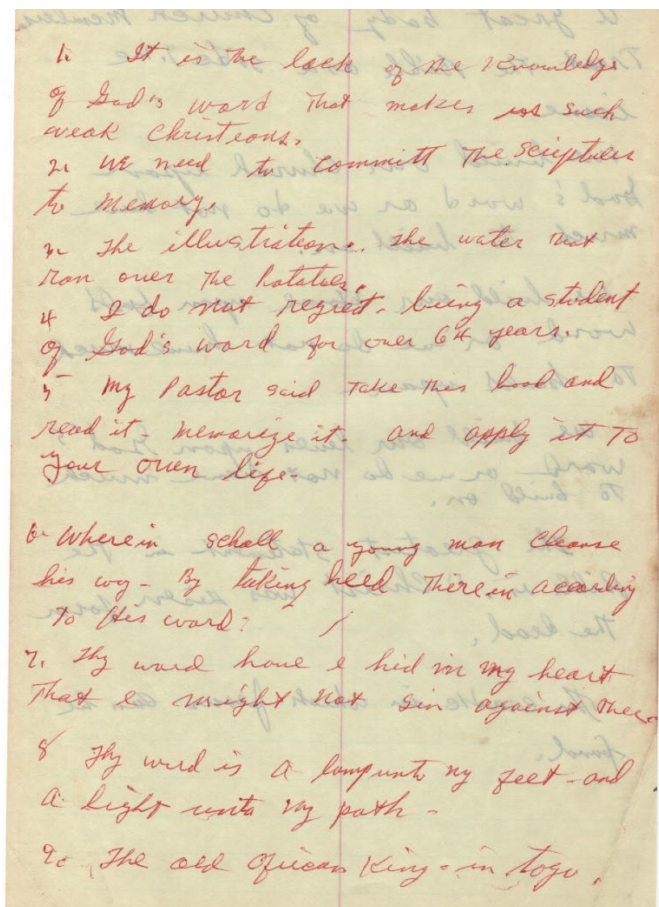 1. It is the lack of the Knowledge
of God's word that makes us such
weak Christians.
2. We need to Committ The Scriptures
to memory.
3. The illustration. The water that
ran over The Potatoes.
4 I do not regret - being a student
of God's word for over 64 years.
5 My Pastor said Take this book and
read it - memorize it - and apply it To
your own life -
6. Wherein schall a young man cleanse
his way - By taking heed There in according
To His word?
7. Thy word have I hid in my heart
That I might not sin against Thee.
8 Thy word is a lamp unto my feet - and
a light unto my path -
9. The old African King - in Togo.